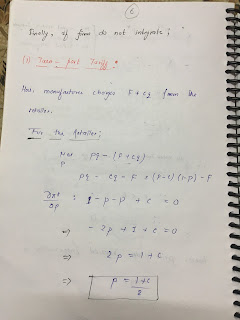 6
Finally, if firms do not integrate;
(1) Two-part Tariff
Here, manufacturer charges F + cq from the
retailer.
For the Retailer;
Max pq - (F + cq)
p
pq - cq - F = (p-c)(1-p) - F
∂π/∂p : 1 - p - p + c = 0
⇒ - 2p + 1 + c = 0
⇒ 2p = 1 + c
⇒ p = (1+c)/2